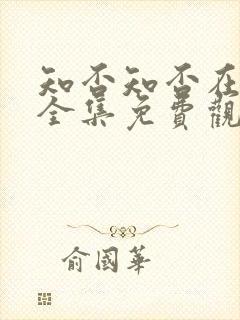 知否知否在
全集免費觀
俞國華